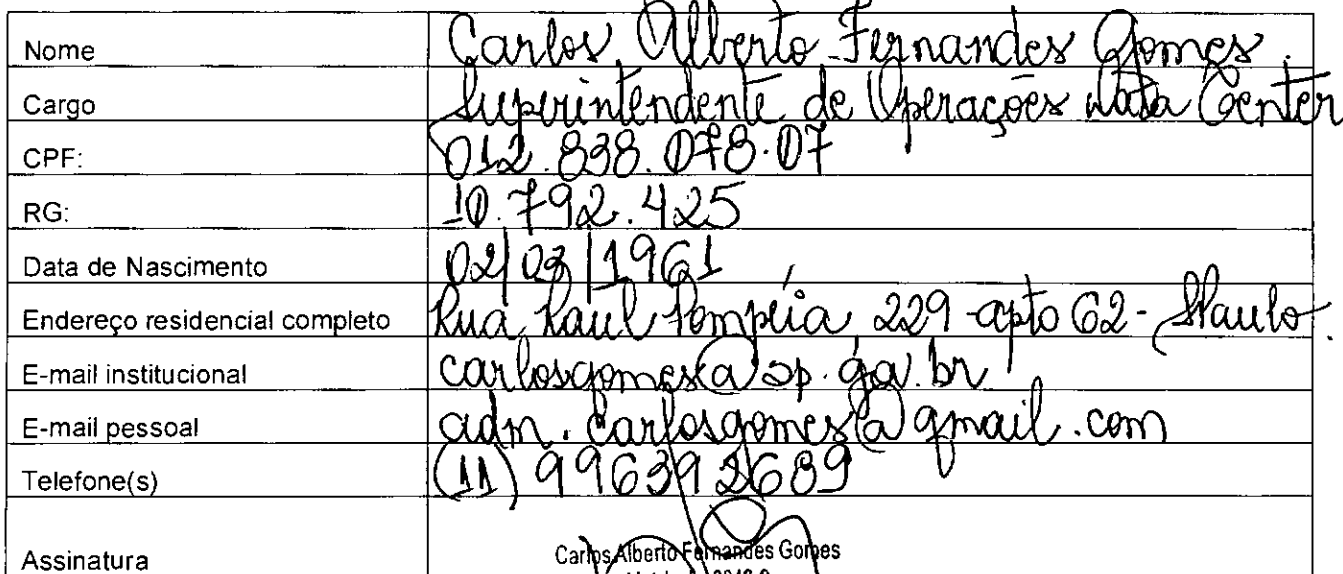 Nome Carlos Alberto Fernandes Gomes.
Cargo Superintendente de Operações Data Center
CPF: 012.838.078.07
RG: 10.792.425
Data de Nascimento 02/03/1961
Endereço residencial completo Rua Raul Pompéia 229 - apto 62 - SPaulo.
E-mail institucional carlosgomes@sp.gov.br
E-mail pessoal adm.carlosgomes@gmail.com
Telefone(s) (11) 996392689
Assinatura Carlos Alberto Fernandes Gomes